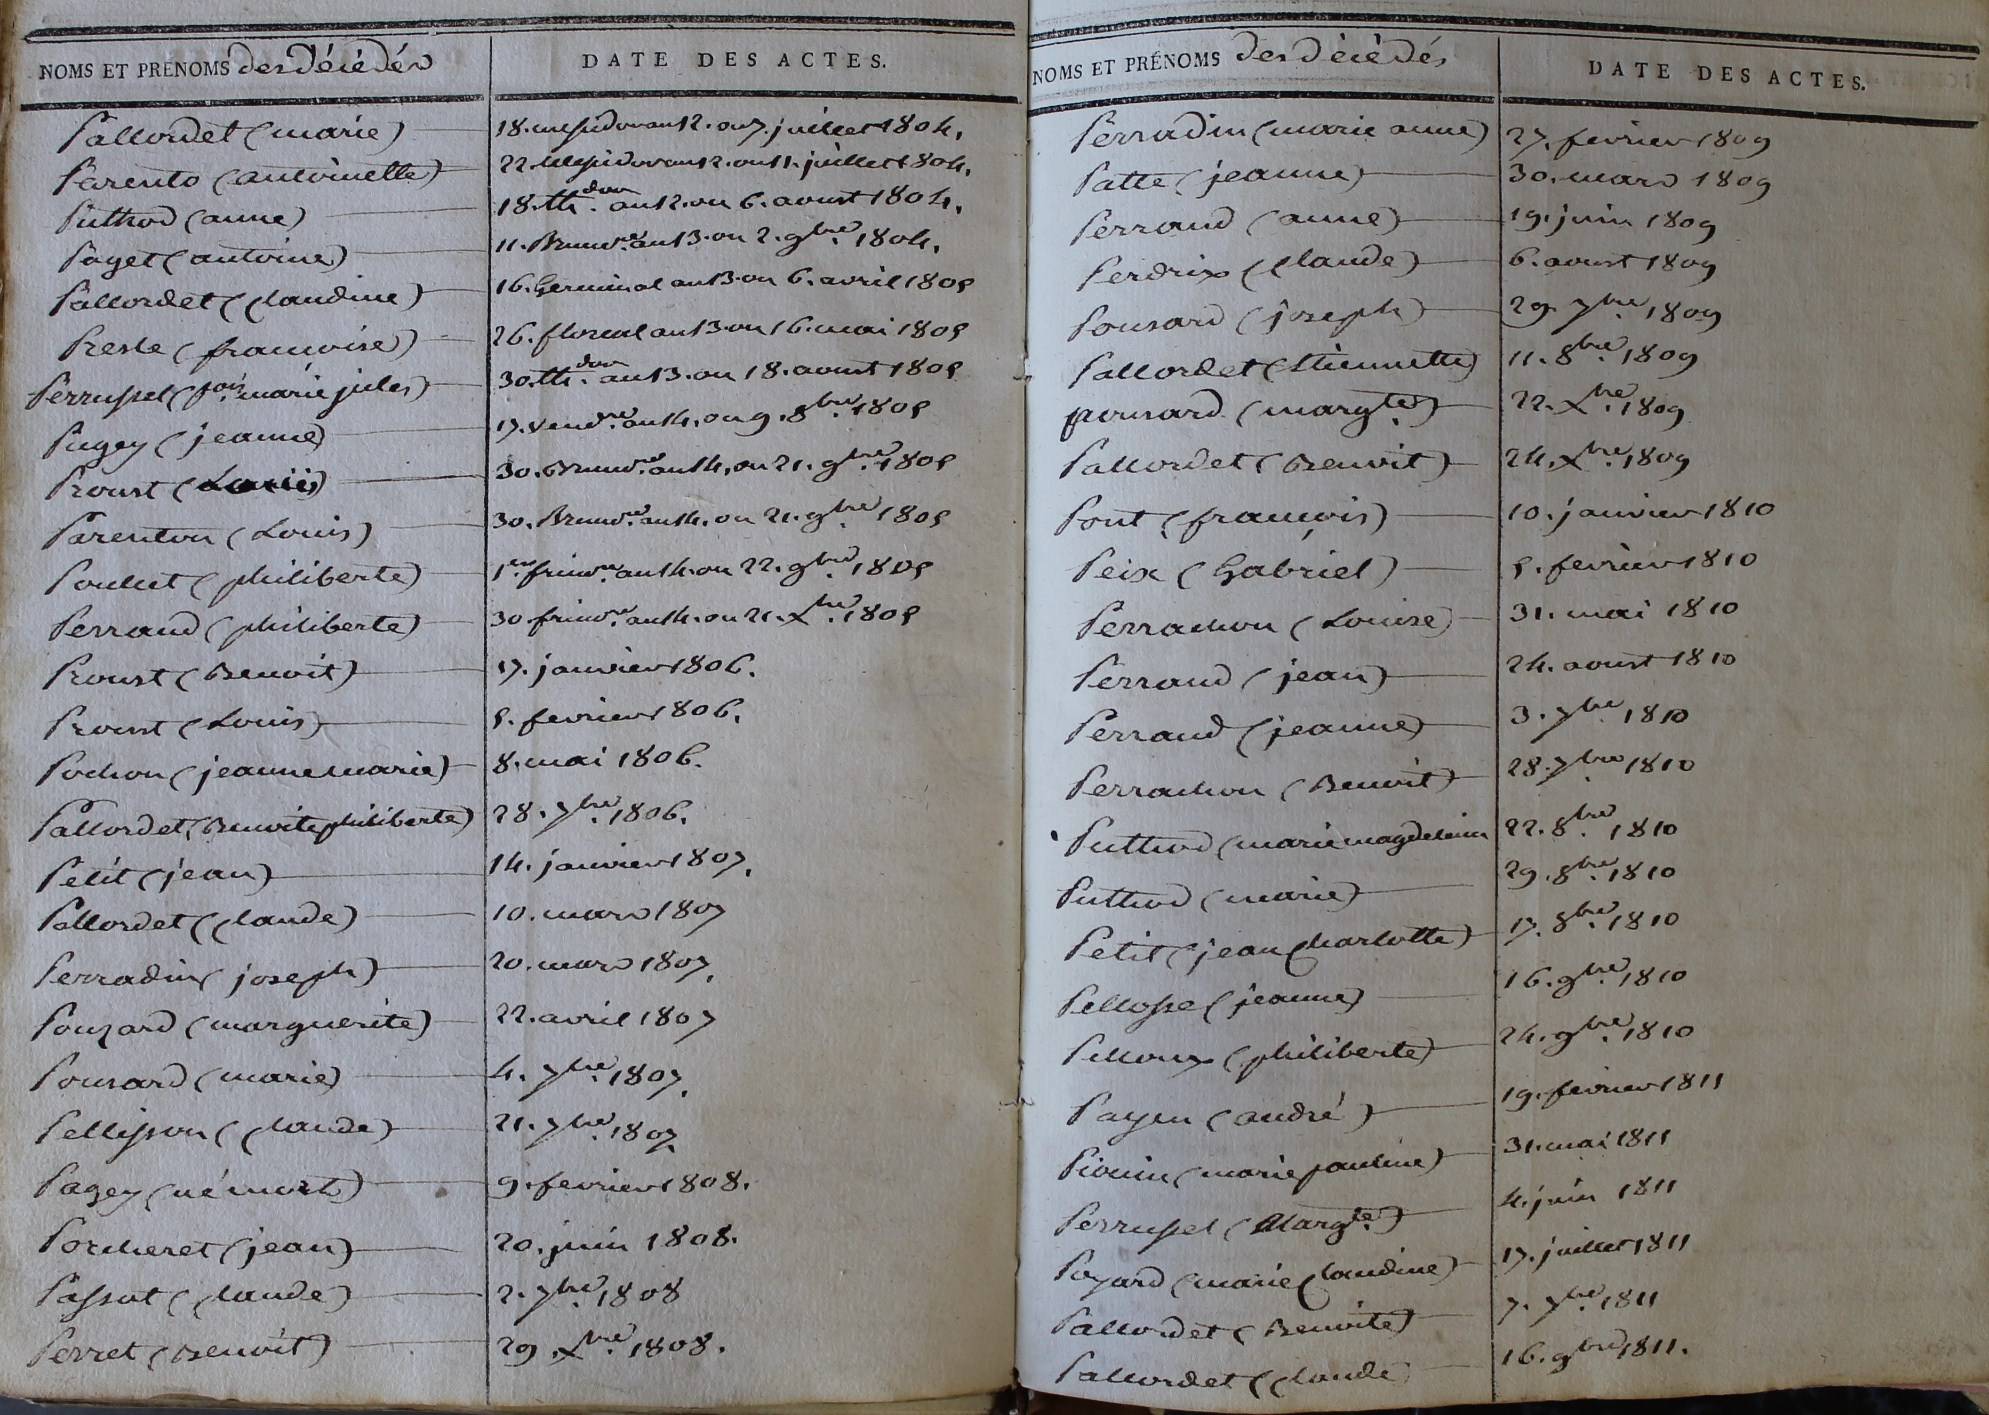 NOMS ET PRÉNOMS des décédés DATE DES ACTES.
Pallordet (marie) 18. messidor an 12. ou 7. juillet 1804.
Parento (antoinette) 22. Messidor an 12. ou 11. juillet 1804.
Puthod (anne) 18. th.dor an 12. ou 6. aoust 1804.
Paget (antoine) 11. Brum.re an 13. ou 2. 9bre 1804.
Pallordet (Claudine) 16. Germinal an 13. ou 6. avril 1805
Presle (françoise) 26. floreal an 13. ou 16. mai 1805
Perrussel (fois marie jules) 30. th.dor an 13. ou 18. aoust 1805
Pugey (jeanne) 17. vend.re an 14. ou 9. 8bre 1805
Proust (Louis) 30. Brum.re an 14. ou 21. 9bre 1805
Parenton (Louis) 30. Brum.re an 14. ou 21. 9bre 1805
Poulet (philiberte) 1er. frim.re an 14. ou 22. 9bre 1805
Perraud (philiberte) 30 frim.re an 14. ou 21. Xbre 1805
Proust (Benoit) 17. janvier 1806.
Proust (Louis) 5. fevrier 1806.
Pochon (jeanne marie) 8. mai 1806.
Pallordet (Benoite philiberte) 28. 7bre 1806.
Petit (jean) 14. janvier 1807.
Pallordet (Claude) 10. mars 1807
Perradin (joseph) 20. mars 1807.
Pouzard (marguerite) 22. avril 1807
Ponsard (marie) 4. 7bre 1807.
Pellisson (Claude) 21. 7bre 1807.
Pagey (né mort) 9. fevrier 1808.
Porcheret (jean) 20. juin 1808.
Passot (Claude) 2. 7bre 1808
Perret (Benoit) 29. Xbre 1808.
NOMS ET PRÉNOMS des décédés DATE DES ACTES.
Perradin (marie anne) 27. fevrier 1809
Patte (jeanne) 30. mars 1809
Perraud (anne) 19. juin 1809
Perdrix (Claude) 6. aoust 1809
Ponsard (joseph) 29. 7bre 1809
Pallordet (Etiennette) 11. 8bre 1809
ponsard (margte) 22. Xbre 1809
Pallordet (Benoit) 24. Xbre 1809
Pont (françois) 10. janvier 1810
Peix (Gabriel) 5. fevrier 1810
Perrachon (Louise) 31. mai 1810
Perraud (jean) 24. aoust 1810
Perraud (jeanne) 3. 7bre 1810
Perrachon (Benoit) 28. 7bre 1810
Puthod (marie magdeleine 22. 8bre 1810
Puthod (marie) 29. 8bre 1810
Petit (jean Charlotte) 17. 8bre 1810
Pellosse (jeanne) 16. 9bre 1810
Pelloux (philiberte) 24. 9bre 1810
Payen (andré) 19. fevrier 1811
(marie pauline) 31. mai 1811
Perrussel (Margte) 4. juin 1811
Poyard (marie Claudine) 17. juillet 1811
Pallordet (Benoite) 7. 7bre 1811
Pallordet (Claude 16. 9bre 1811.